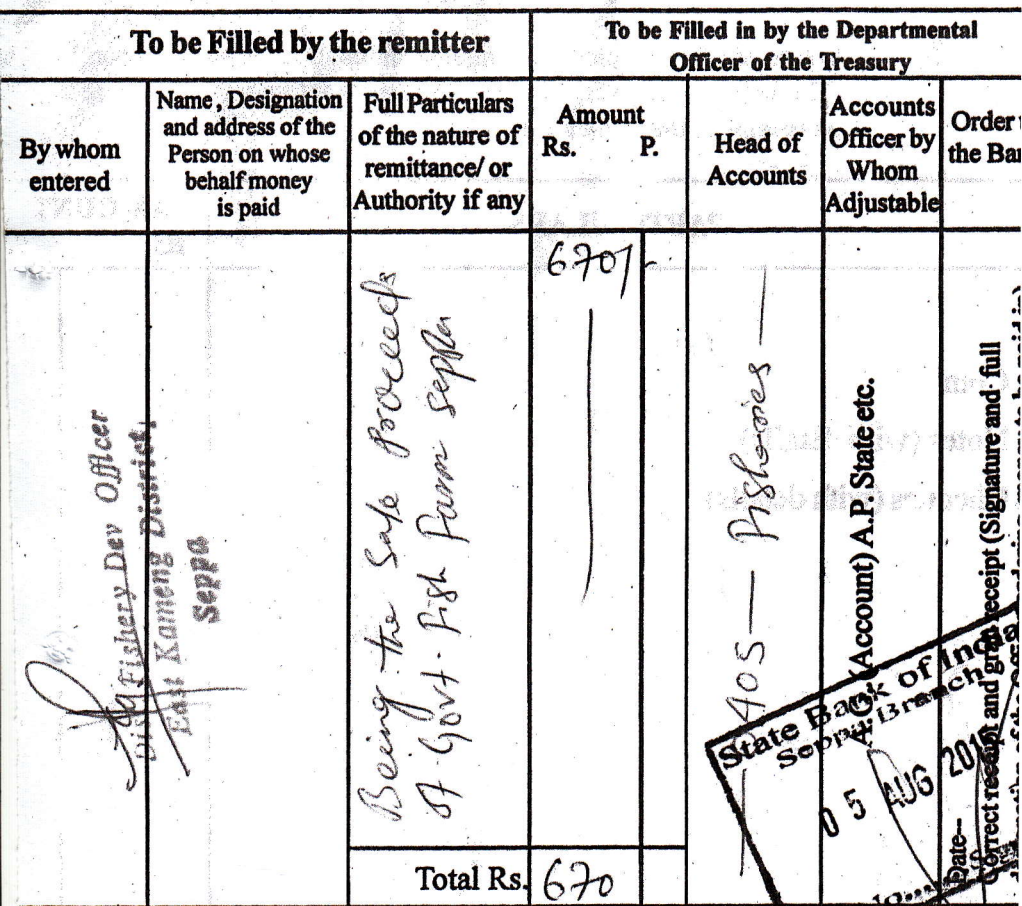 To be Filled by the remitter
To be Filled in by the Departmental
Officer of the Treasury
By whom
entered
Name, Designation
and address of the
Person on whose
behalf money
is paid
Full Particulars
of the nature of
remittance/ or
Authority if any
Amount
Rs. P.
Head of
Accounts
Accounts
Officer by
Whom
Adjustable
Order
the
Fishery Dev Officer
East Kameng District,
Seppa
Being the Sale Proceeds
of Govt. Fish Farm Seppa
670/-
405 — Fisheries —
(Account) A.P. State etc.
State Bank of India
Seppa Branch
05 AUG
Date--
Correct receipt and grant receipt (Signature and full
Total Rs. 670